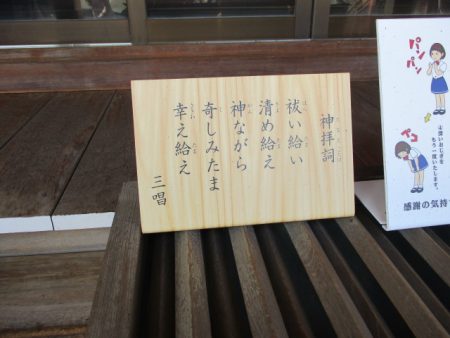 神拝詞
祓い給い
清め給え
神ながら
奇しみたま
幸え給え
三唱
パンパン
ペコ
もう一度いたします。
感謝の気持